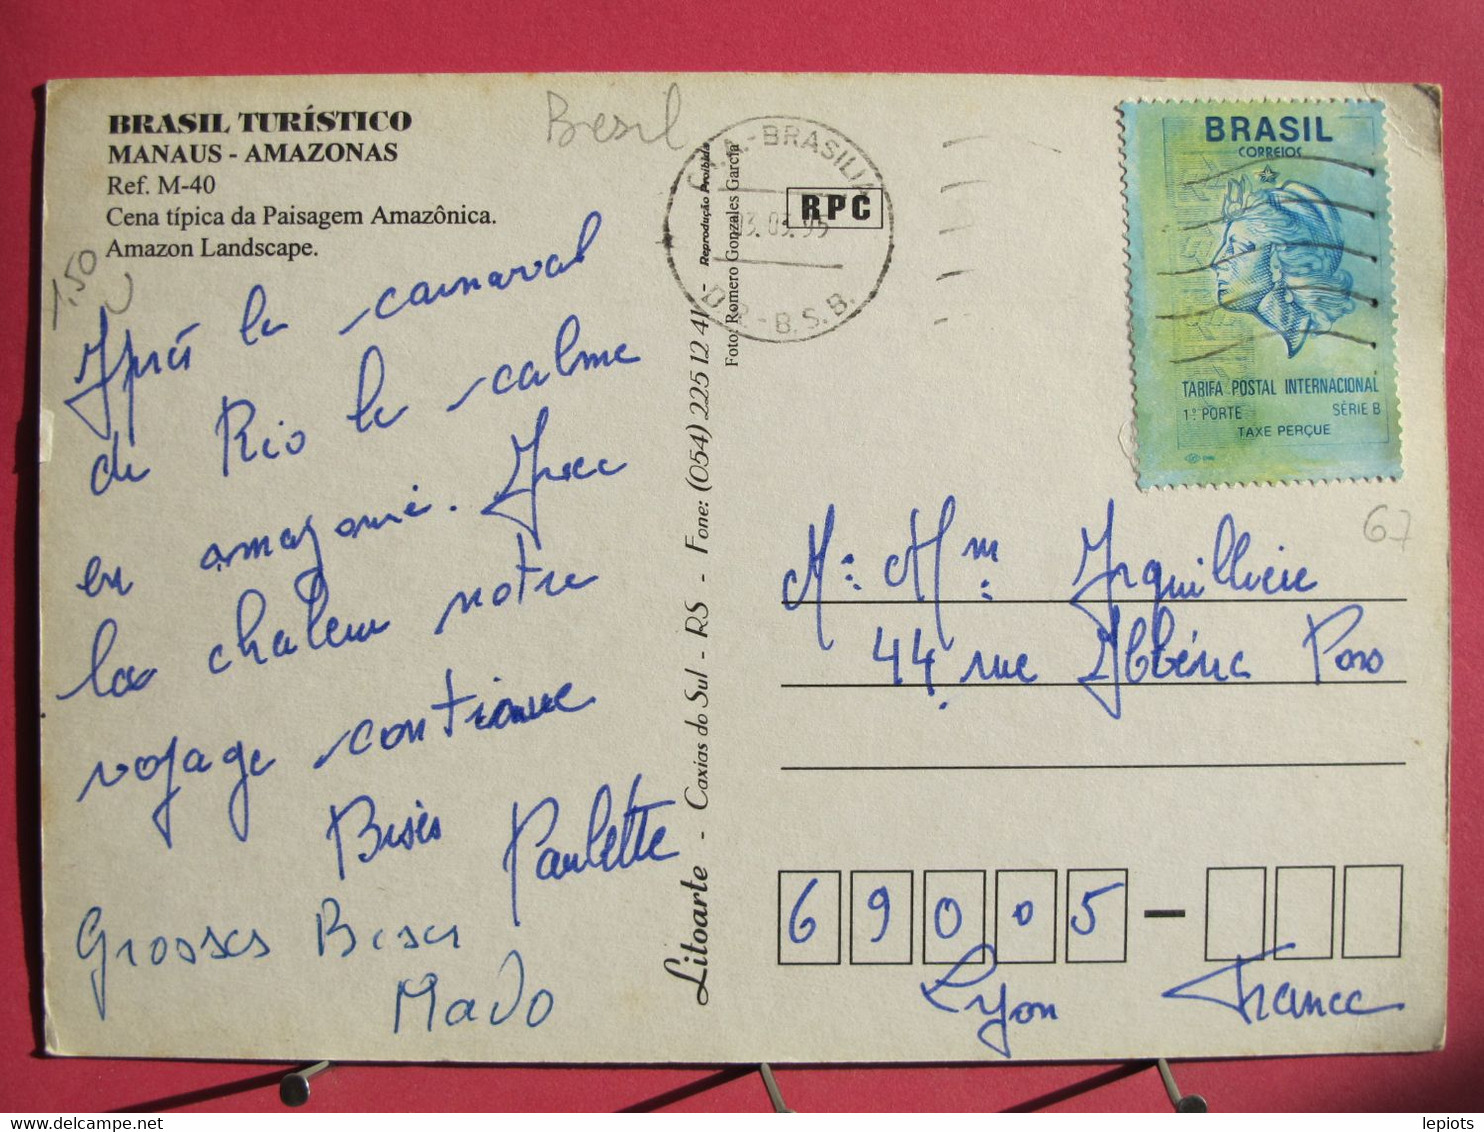 BRASIL TURÍSTICO
MANAUS - AMAZONAS
Ref. M-40
Cena típica da Paisagem Amazônica.
Amazon Landscape.
1,50
Brésil
Après le carnaval
de Rio le calme
en amazonie. Avec
la chaleur notre
voyage continue
Bises Paulette
Grosses Bises
Mado
Litoarte - Caxias do Sul - RS - Fone: (054) 225 12 41 - Reprodução Proibida
Foto: Romero Gonzales Garcia
RPC
BRASILIA
03.03.95
B.S.B.
BRASIL
CORREIOS
TARIFA POSTAL INTERNACIONAL
1º PORTE SÉRIE B
TAXE PERÇUE
67
M. Mm. Arquillière
44, rue
69005 -
Lyon France
lepiots